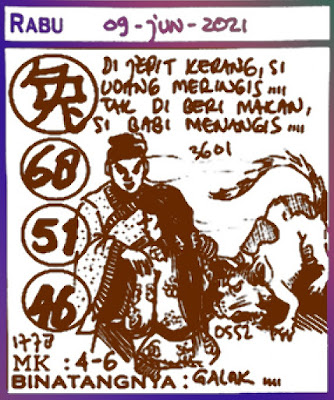 RABU 09-JUN-2021
兔
DI JEPIT KERANG, SI
UDANG MERINGIS....
TAK DI BERI MAKAN,
SI BABI MENANGIS....
3601
68
51
46
0552
1778
MK : 4-6
BINATANGNYA : GALAK....